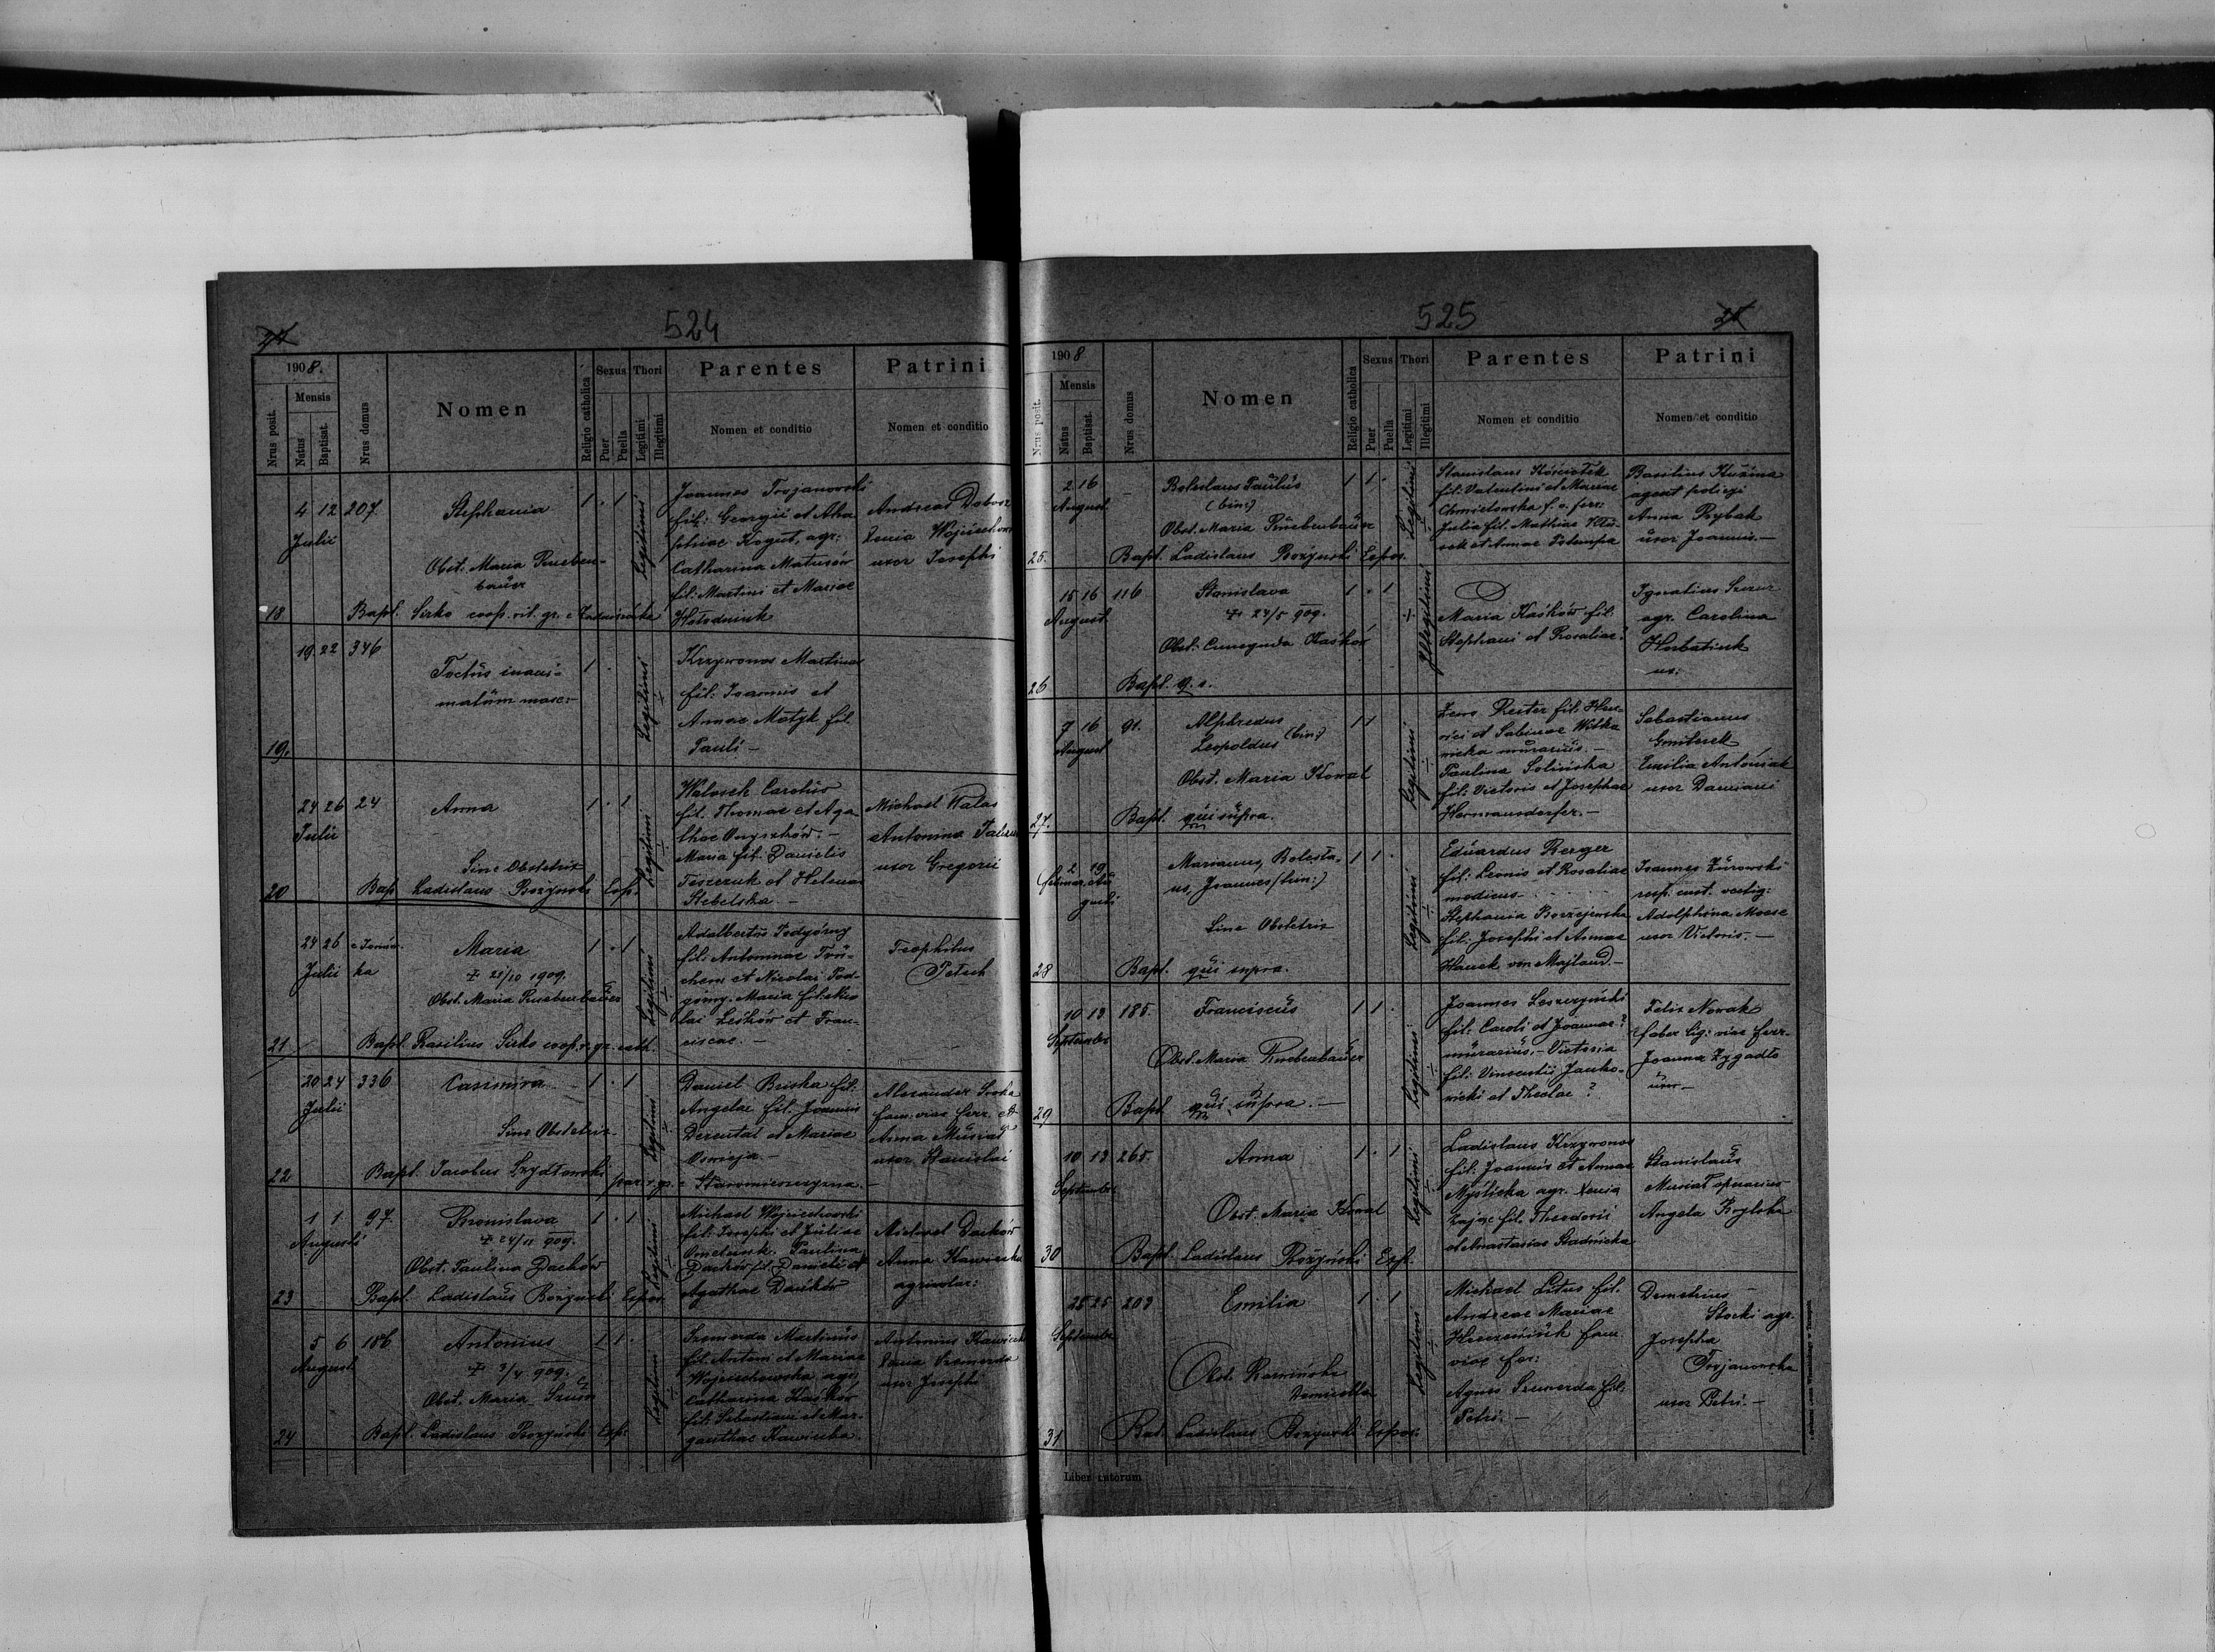 524
24
1908.
Nrus posit.
Mensis
Natus
Baptisat.
Nrus domus
Nomen
Religio catholica
Sexus
Puer
Puella
Thori
Legitimi
Illegitimi
Parentes
Nomen et conditio
Patrini
Nomen et conditio
18
4 12 207.
Julii
Stephania
Obst. Maria Knoben-
bauer
Bapt. Sirko coop. rit. gr.
1 . 1
Legitimi
Joannes Trojanowski
fil: Georgii et Aha
phiae Kogut, agr:
Catharina Matusów
fil: Martini et Mariae
Hołodniuk
Andreas Dobosz
Xenia Wojciechow
uxor Josephi
19.
19. 22 346
Foetus inani-
matum masc:-
1 .
Legitimi
Krzywonos Martinus
fil: Joannis et
Annae Motyk fil.
Pauli -
20
24 26 24
Julii
Anna
Sine Obstetrix
Bap Ladislaus Bożynski Exp.
1 . 1
Legitimi
Walasek Carolus
fil. Thomae et Aga
thae Onyszków. -
Maria fil: Danielis
Teszczuk et Helenae
Rebelska -
Michael Walas
Antonina
uxor Gregorii
21
24 26
Julii
Maria
+ 21/10 1909.
Obst. Maria Knobenbauer
Bapt. Basilius Sirko coop. r. gr. cath.
1 . 1
Legitimi
Adalbertus Podgórny
fil: Antoninae
et Nicolai Pod-
górny. Maria fil: Nico
lai Leśków et Fran-
ciscae. -
Teophilus
Petsch
22
20 24 336
Julii
Casimira
Sine Obstetrix.
Bapt. Jacobus Szydłowski par. r. gr. c Staromieszczyzna. -
1 . 1
Legitimi
Daniel Briska fil:
Angelae fil. Joannis
et Mariae
Alexander Sroka
fam: viae ferr. et
Anna Musiał
uxor Stanislai
23
1 1 97
Augusti
Bronislava
+ 24/11 909.
Obst. Paulina Daćków
Bapt. Ladislaus Bożynski Expos.
1 . 1
Legitimi
Michael Wojciechowski
fil: Josephi et Juliae
Paulina
Daćków fil. Danieli et
Agathae Daćków
Michael Daćków
Anna Kawiecka
agricolae:
24
5 6 186
August
Antonius
+ 3/4 909.
Obst. Maria
Bapt. Ladislaus Bożyński Exp:
1 1 .
Legitimi
Szmerda Martinus
fil: Antoni et Mariae
Wojciechowska agr.
Catharina Kaśków
fil: Sebastiani et Mar-
garithae Kawiecka.
Antonius Kawiecki
Xenia Szmerda
uxor Josephi
525
25
1908
Nrus posit.
Mensis
Natus
Baptisat.
Nrus domus
Nomen
Religio catholica
Sexus
Puer
Puella
Thori
Legitimi
Illegitimi
Parentes
Nomen et conditio
Patrini
Nomen et conditio
25.
2 16
August
Boleslaus Paulus
(bin:)
Obst. Maria Knobenbauer
Bapt. Ladislaus Bożynski Expos.
1 1 .
Legitimi
Stanislaus Kościołek
fil: Valentini et Mariae
Chmielowska f. v. ferr:
Julia fil. Mathiae
et Annae
Basilius Kuźma
agent policyi
Anna Rybak
uxor Joannis. -
26
15 16 116
August
Stanislava
+ 24/5 909.
Obst: Cunegunda Kaśków
Bapt. q. s.
1 . 1
Illegitimi
Maria Kaśków fil:
Stephani et Rosaliae?
Ignatius
agr. Carolina
Horbatiuk
ux:
27.
7 16 91.
August
Alphredus
Leopoldus (bin:)
Obst. Maria Kowal
Bapt. qui supra.
1 1
Legitimi
Zeno Reiter fil: Hen-
rici et Sabinae Witka
nicka murarius. -
Paulina Solińska
fil: Victoris et Josephae
Hermansdorfer. -
Sebastianus
Gmiterek
Emilia Antoniak
uxor Damiani
28
2 19
Marianus, Bolesla-
us, Joannes (trin:)
Sine Obstetrix
Bapt. qui supra.
1 1 .
Legitimi
Eduardus Berger
fil: Leonis et Rosaliae
medicus.
Stephania Borzejewska
fil: Josephi et Annae
Hauek von Majland. -
Joannes Żurowski
resp. cust. vectig:
Adolphina Moese
uxor Victoris. -
29
10 13 185.
September
Franciscus
Obst. Maria Knobenbauer
Bapt qui supra. -
1 1 .
Legitimi
Joannes Leszczyński
fil: Caroli et Joannae?
murarius. - Victoria
fil: Vincentii Janko-
wicki et Theolae?
Felix Nowak
faber lig: viae ferr.
Joanna Zygadło
uxor -
30
10 13 265.
September
Anna
Obst. Maria Kowal
Bapt. Ladislaus Bożyński Exp.
1 . 1
Legitimi
Ladislaus Krzywonos
fil: Joannis et Annae
Myślicka agr. Xenia
Zając fil. Theodori
et Anastasiae Stadnicka
Stanislaus
Musiał operarius
Angela
31
25 25 203
September
Emilia
Obst. Kamińska
Domicella
Bat. Ladislaus Bożynski Expos:
1 . 1
Legitimi
Michael Litus fil.
Andreae Mariae
fam.
viae fer:
Agnes Szmerda fil:
Petri. -
Demetrius -
Stocki agr.
Josepha
Trojanowska
uxor Petri. -
Liber natorum